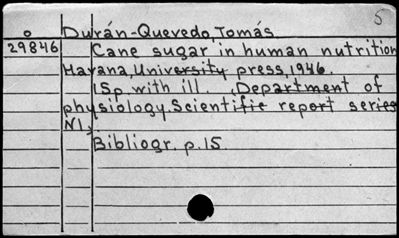 5
o Durán-Quevedo, Tomás
29846 Cane sugar in human nutrition
Havana, University press, 1946.
15p with ill. (Department of
physiology. Scientific report series
N1)
Bibliogr. p.15.